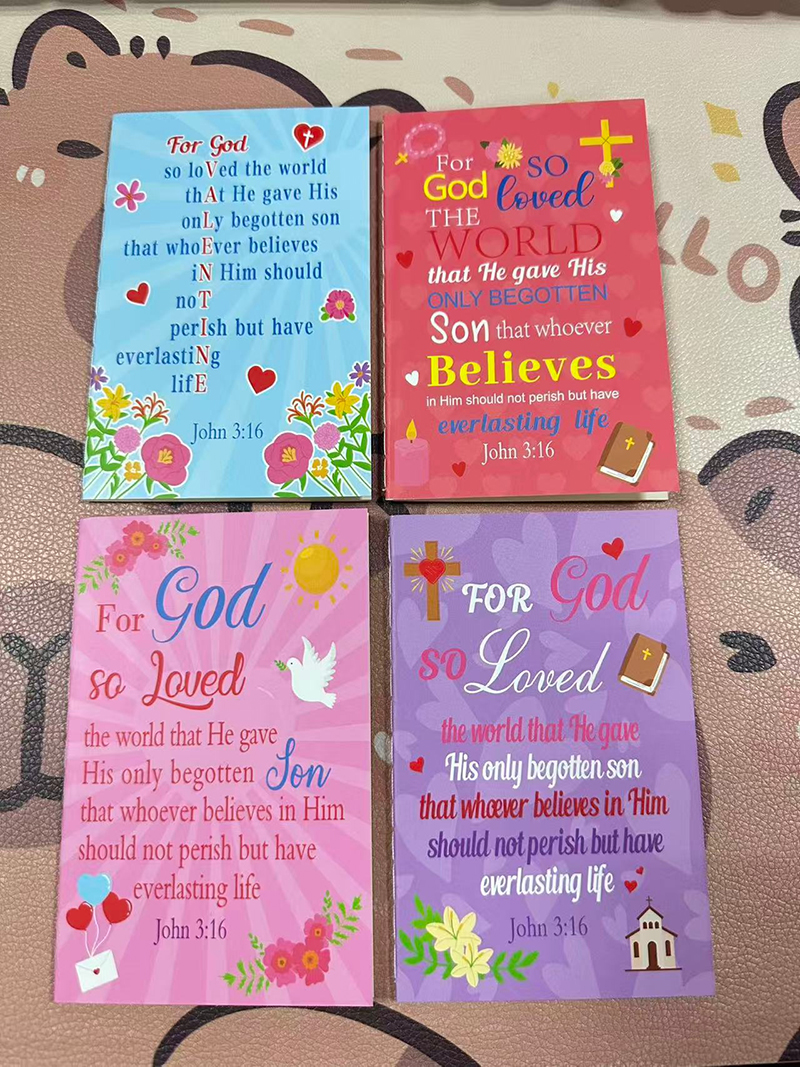 For God
so loVed the world
thAt He gave His
onLy begotten son
that whoEver believes
iN Him should
noT
perIsh but have
everlastiNg
lifE
John 3:16
For
God
SO
loved
THE
WORLD
that He gave His
ONLY BEGOTTEN
Son that whoever
Believes
in Him should not perish but have
everlasting life
John 3:16
For God
so Loved
the world that He gave
His only begotten Son
that whoever believes in Him
should not perish but have
everlasting life
John 3:16
FOR God
SO Loved
the world that He gave
His only begotten son
that whoever believes in Him
should not perish but have
everlasting life
John 3:16
LLO